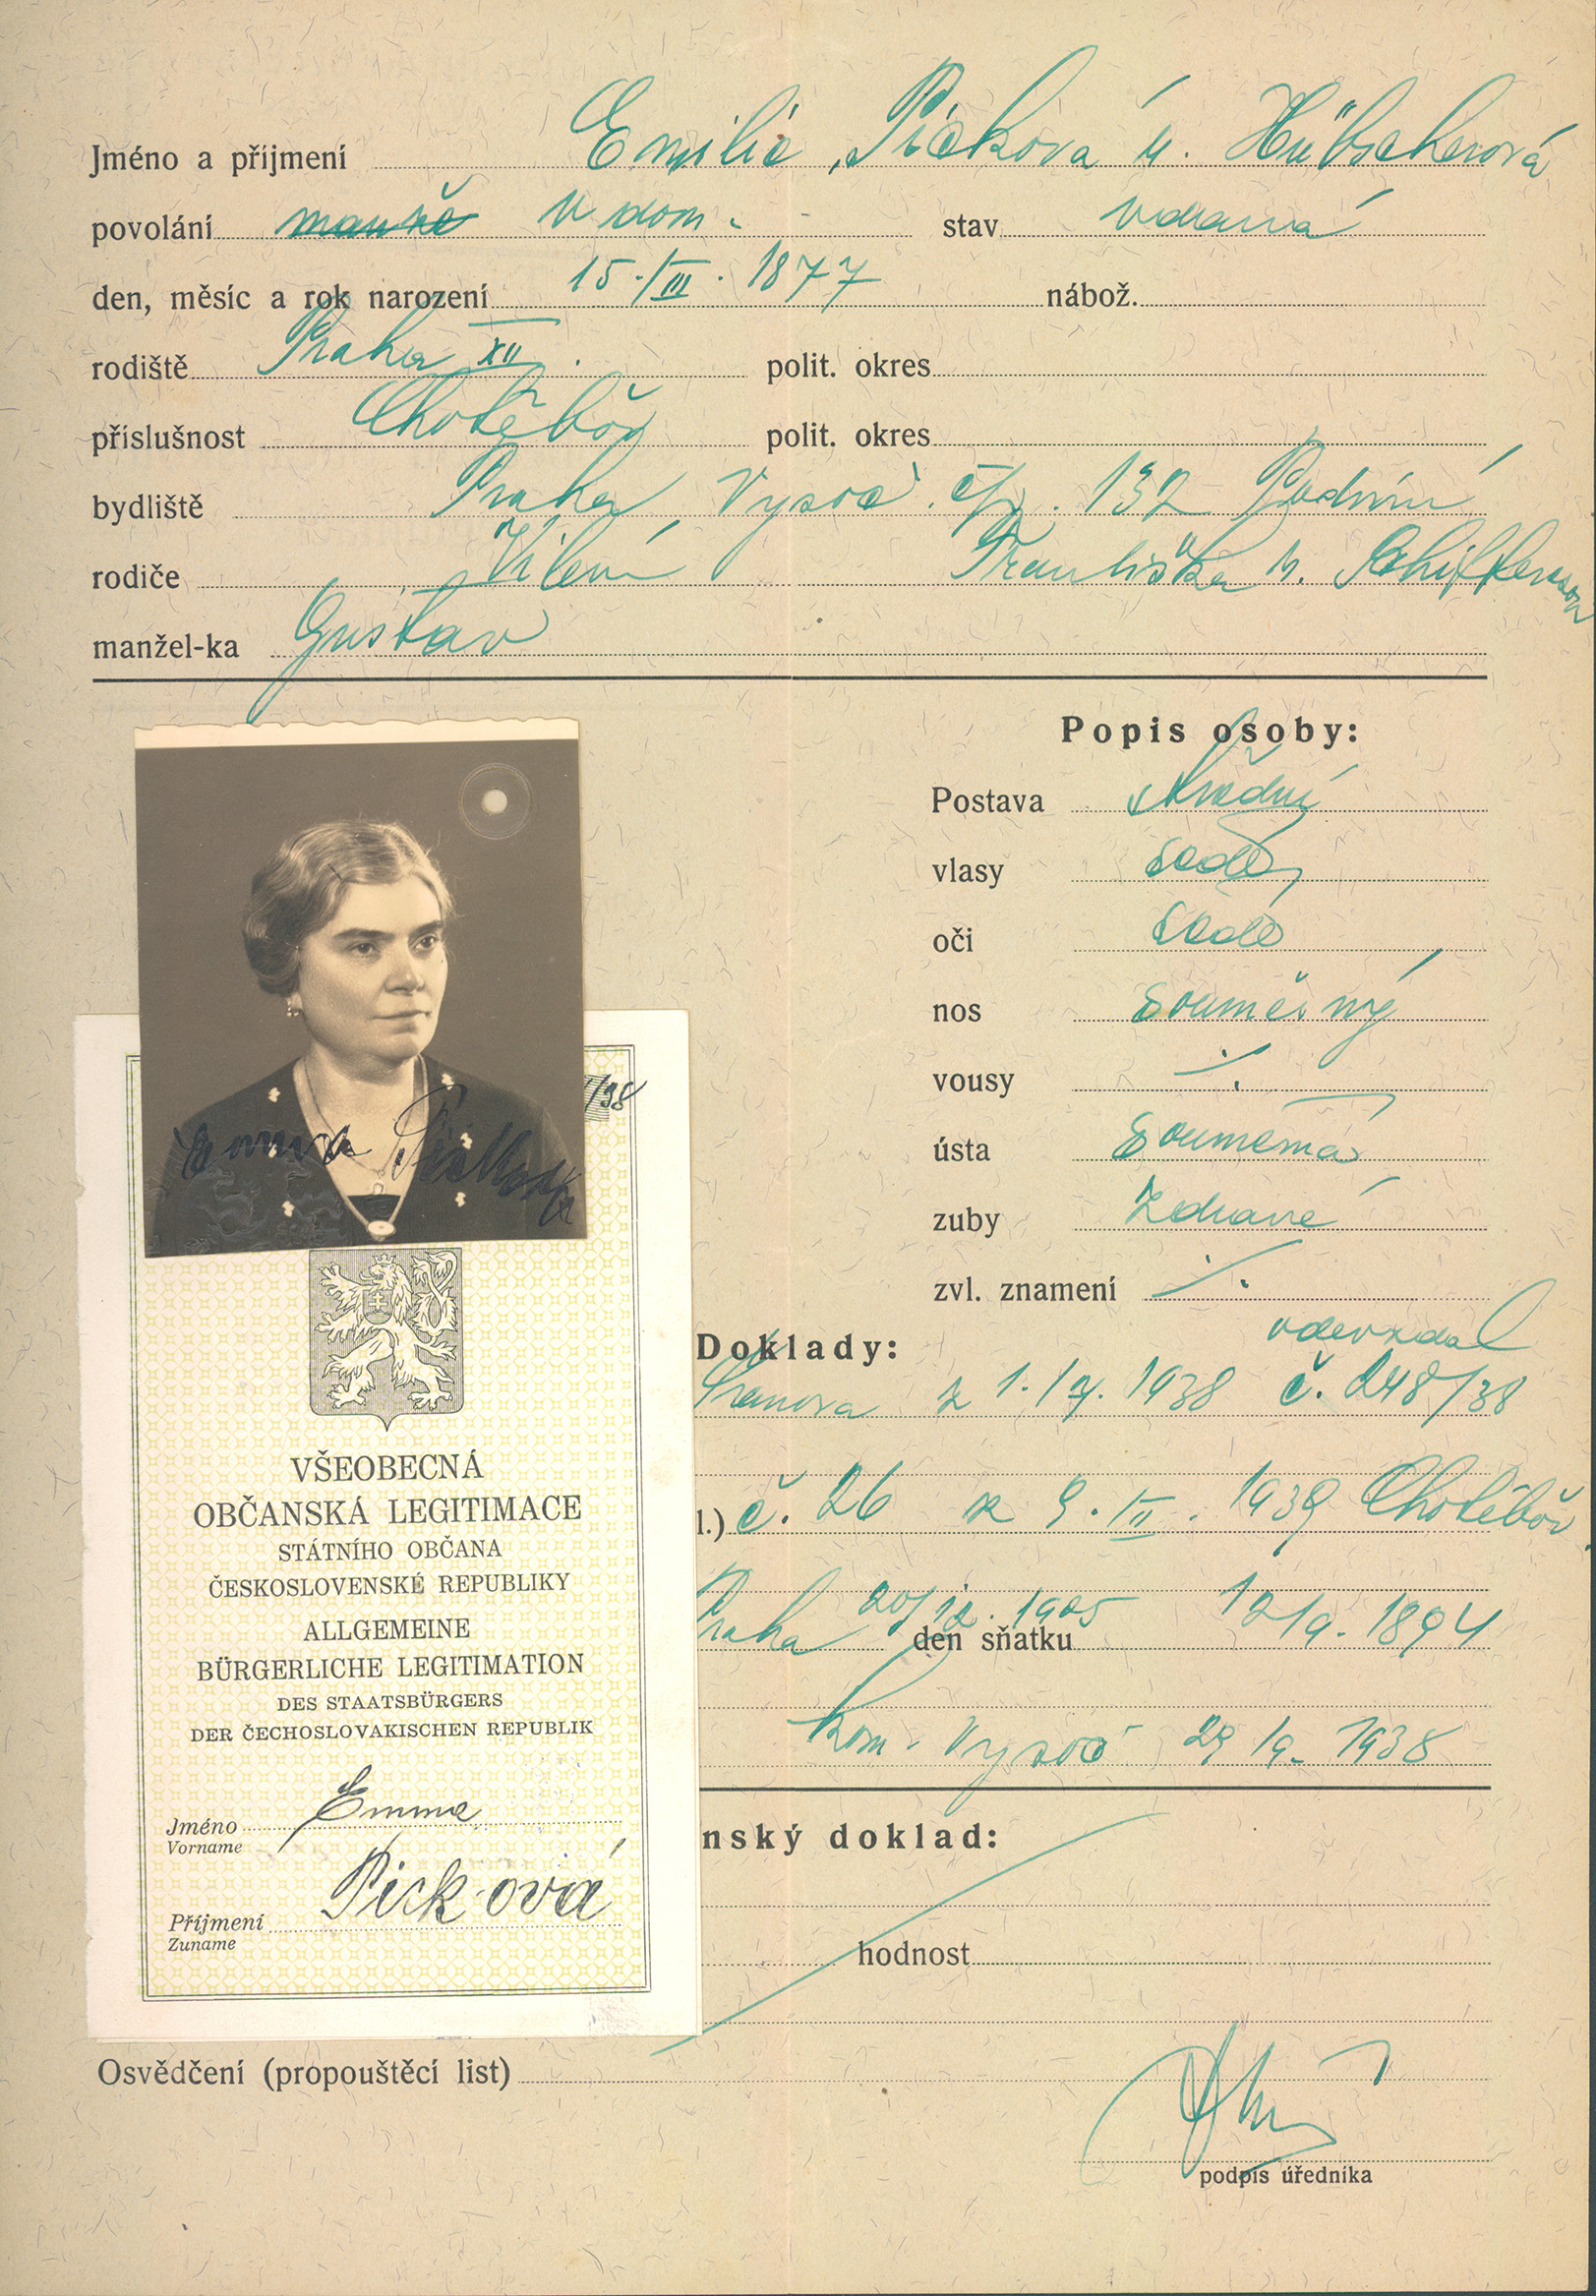 Jméno a příjmení Emilie Picková r. Hübscherová
povolání manž v dom. stav vdaná
den, měsíc a rok narození 15./III. 1877 nábož.
rodiště Praha XII. polit. okres
příslušnost Chotěboř polit. okres
bydliště Praha Vysoč. čp. 132 Podviní
rodiče Vilém Františka r.
manžel-ka Gustav
Popis osoby:
Postava střední
vlasy šedé
oči šedé
nos souměrný
vousy ⁒
ústa souměrná
zuby zdravé
zvl. znamení ⁒
/38
Emma Picková
Doklady:
odevzdal
z 1./7. 1938 č. 248/38
l.) č. 26 z 9. II. 1939 Chotěboř
Praha 20/12. 1905 den sňatku 12/9. 1894
kom. Vysoč 29/9. 1938
nský doklad:
hodnost
VŠEOBECNÁ
OBČANSKÁ LEGITIMACE
STÁTNÍHO OBČANA
ČESKOSLOVENSKÉ REPUBLIKY
ALLGEMEINE
BÜRGERLICHE LEGITIMATION
DES STAATSBÜRGERS
DER ČECHOSLOVAKISCHEN REPUBLIK
Jméno Emma
Vorname
Příjmení Picková
Zuname
Osvědčení (propouštěcí list)
podpis úředníka